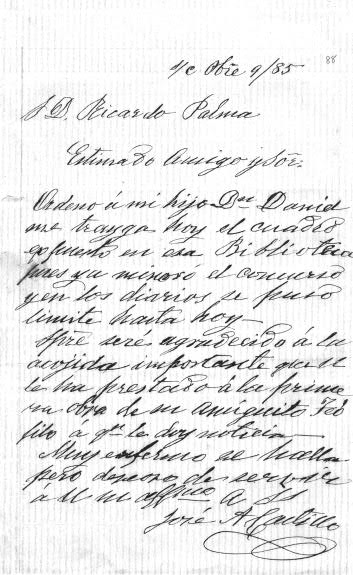 88
s/c Obre 9/85
S. D. Ricardo Palma
Estimado Amigo y Sõr:
Ordeno á mi hijo Dn David
me trayga hoy el cuadro
espuesto en esa Biblioteca
pues ya el concurso
y en los diarios se puso
limite hasta hoy
Spre sere agradecido á la
acojida importante que U
le ha prestado á la prime
ra obra de su amiguito Teó
filo á qn le doy noticia
Muy enfermo se halla
pero deseoso de servir
a U su A. SS
José A Castillo